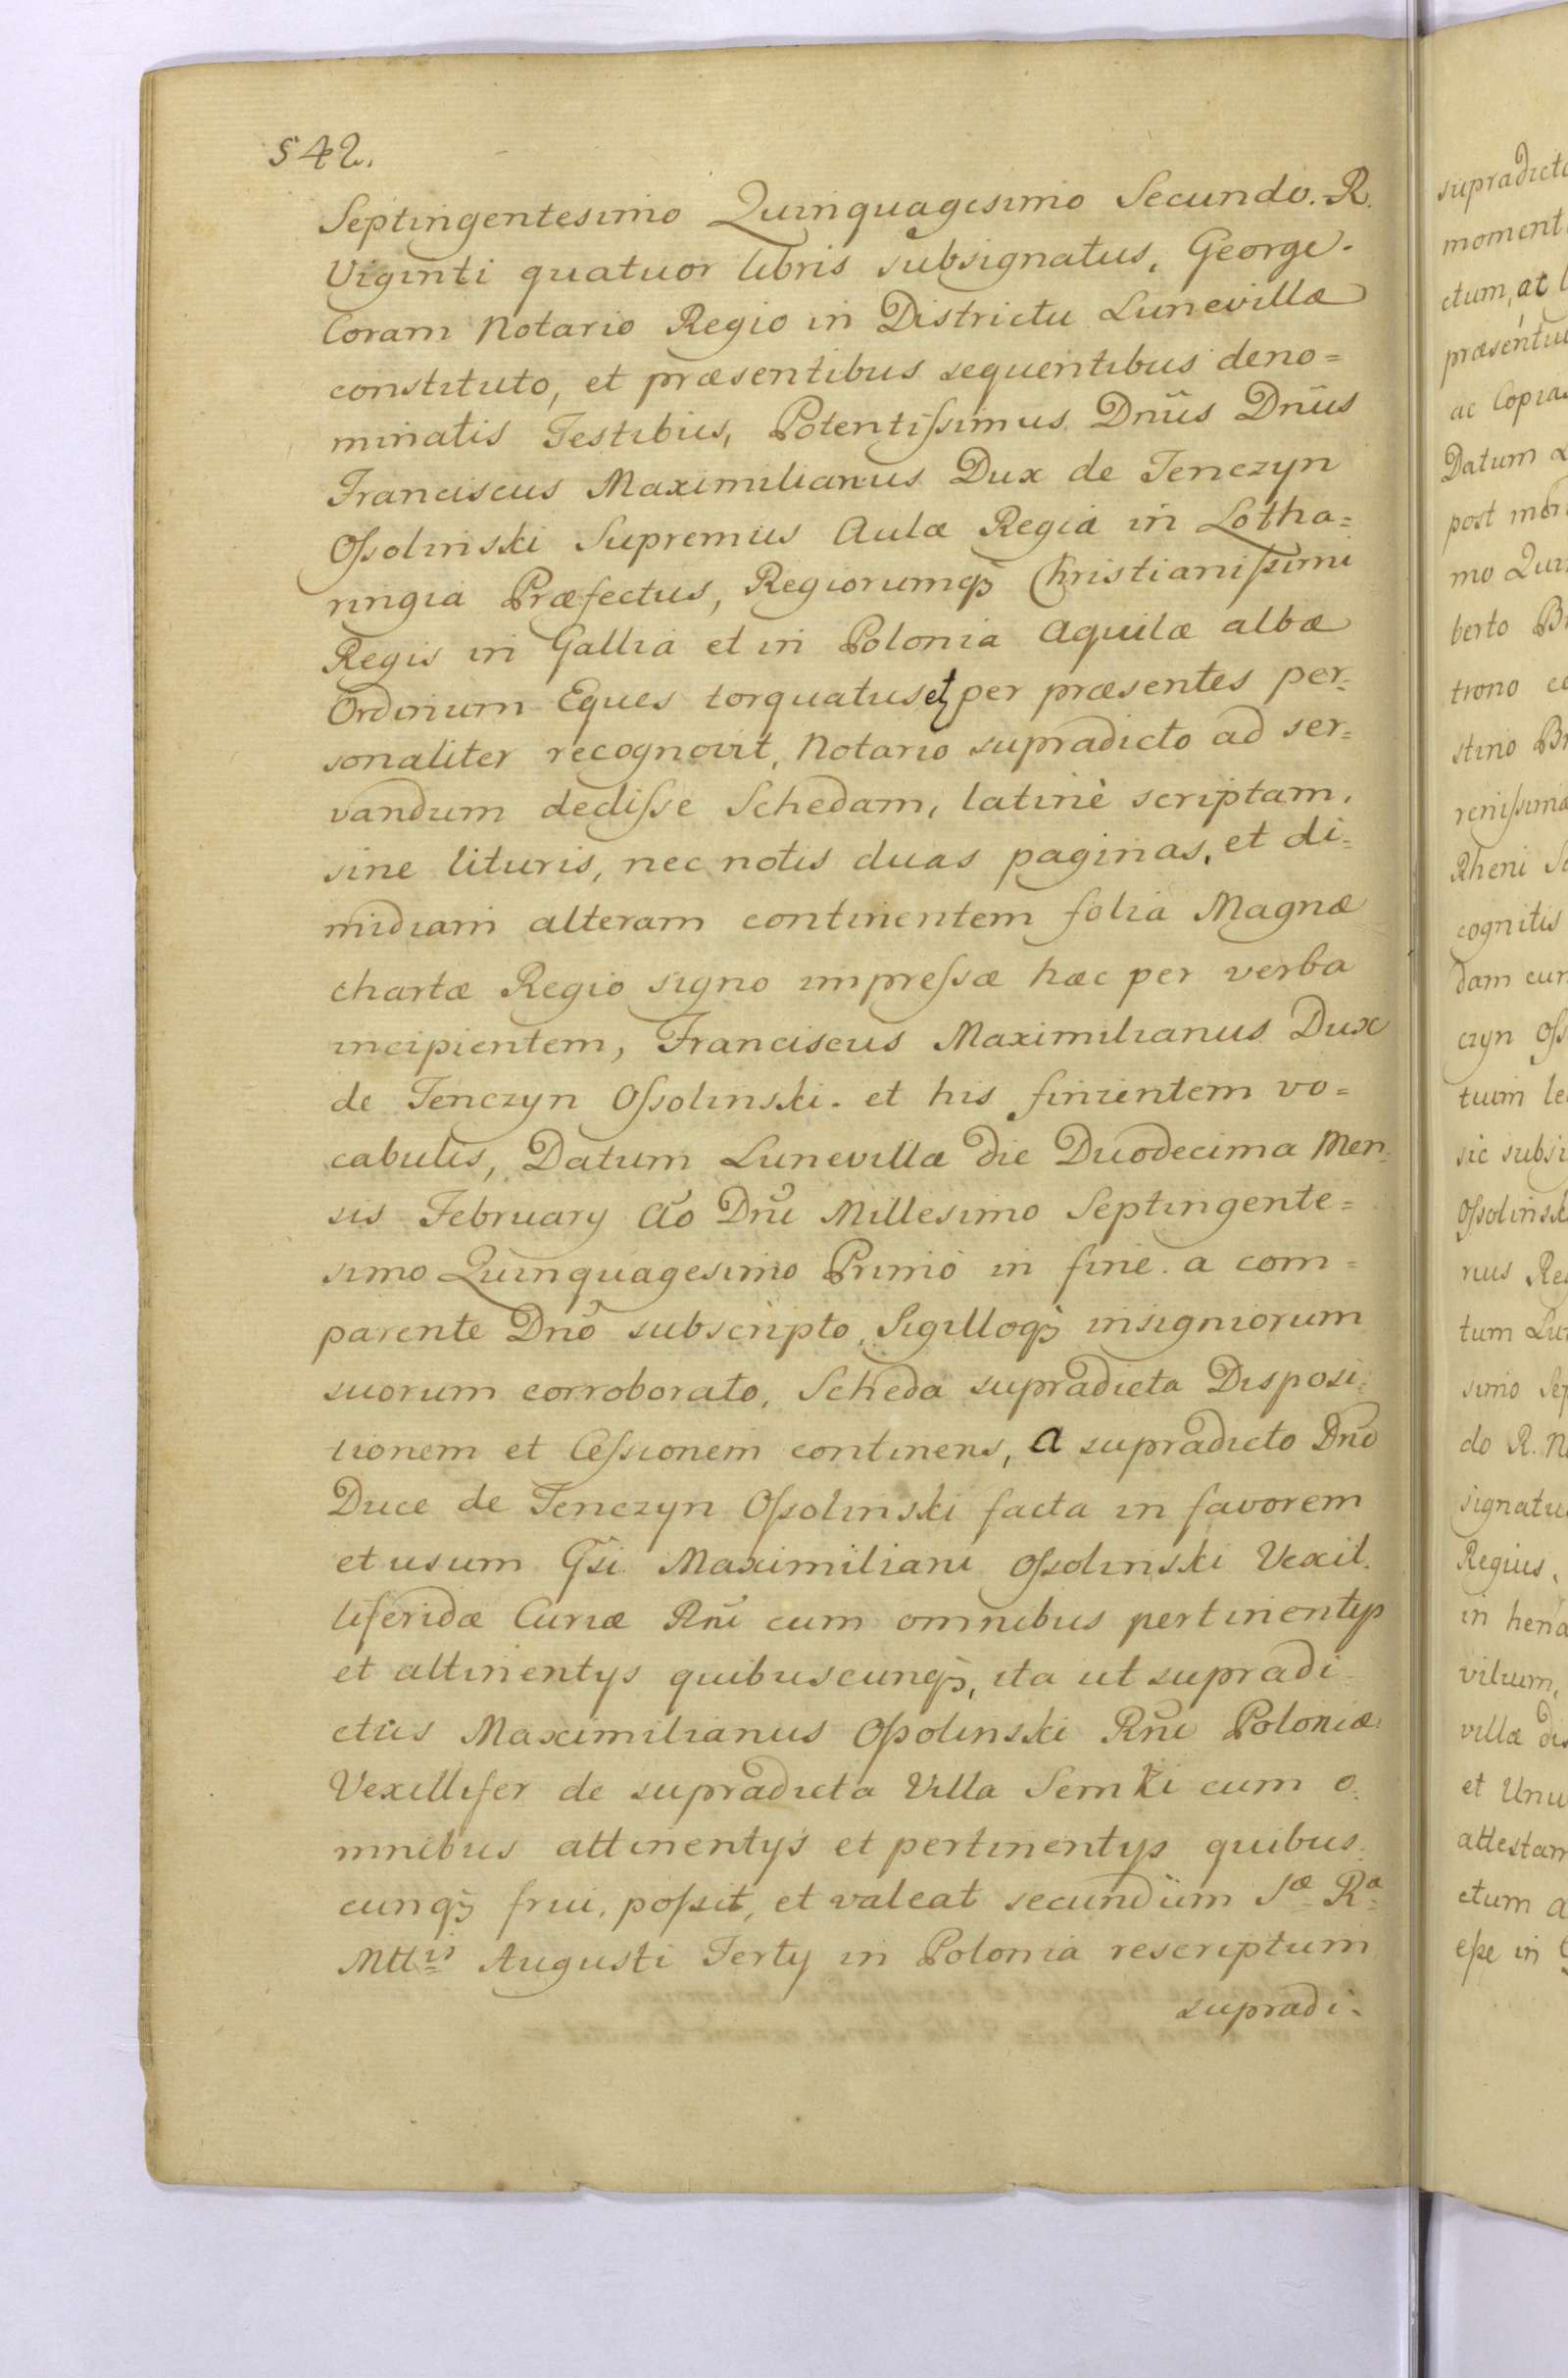 542.
Septingentesimo Quinquagesimo Secundo. R.
Viginti quatuor libris subsignatus, George.
Coram Notario Regio in Districtu Lunevillæ
constituto, et præsentibus sequentibus deno=
minatis Testibus, Potentißimus Dnũs Dnũs
Franciscus Maximilianus Dux de Tenczyn
Oßolinski Supremus Aulæ Regiá in Lotha=
ringiá Præfectus, Regiorumqꝫ Christianißimi
Regis in Gallia et in Polonia Aquilæ albæ
Ordinum Eques torquatus et per præsentes per=
sonaliter recognovit, Notario supradicto ad ser=
vandum dediße Schedam, latinè scriptam,
sine lituris, nec notis duas paginas, et di=
midiam alteram continentem folia Magnæ
chartæ Regio signo impreßæ hæc per verba
incipientem, Franciscus Maximilianus Dux
de Tenczyn Oßolinski. et his finientem vo=
cabulis, Datum Lunevillæ die Duodecima Men=
sis February Aõ Dnĩ Millesimo Septingente=
simo Quinquagesimo Primò in fine. a com=
parente Dnõ subscripto, Sigilloqꝫ insigniorum
suorum corroborato, Scheda supradicta Disposi=
tionem et Ceßionem continens, a supradicto Dnõ
Duce de Tenczyn Oßolinski facta in favorem
et usum Gsi Maximiliani Oßolinski Vexil=
liferidæ Curiæ Rnĩ cum omnibus pertinentys
et attinentys quibuscunqꝫ, ita ut supradi=
ctus Maximilianus Oßolinski Rnĩ Poloniæ
Vexillifer de supradicta Villa Semki cum o=
mnibus attinentys et pertinentys quibus=
cunqꝫ frui, poßit, et valeat secundùm Sæ Ræ
Mttis Augusti Terty in Polonia rescriptum
supradi=
supradict
moment
ctum, ac
præsentiu
ac Copia
Datum
post
mo Qui
berto
trono
stino
renißima
Rheni
cognitis
dam
czyn
tum
sic subsi
Oßolinsk
nus
tum
simo
do R.
signatu
Regius,
in
vilium,
villæ
et Unu
attestam
ctum
eße in